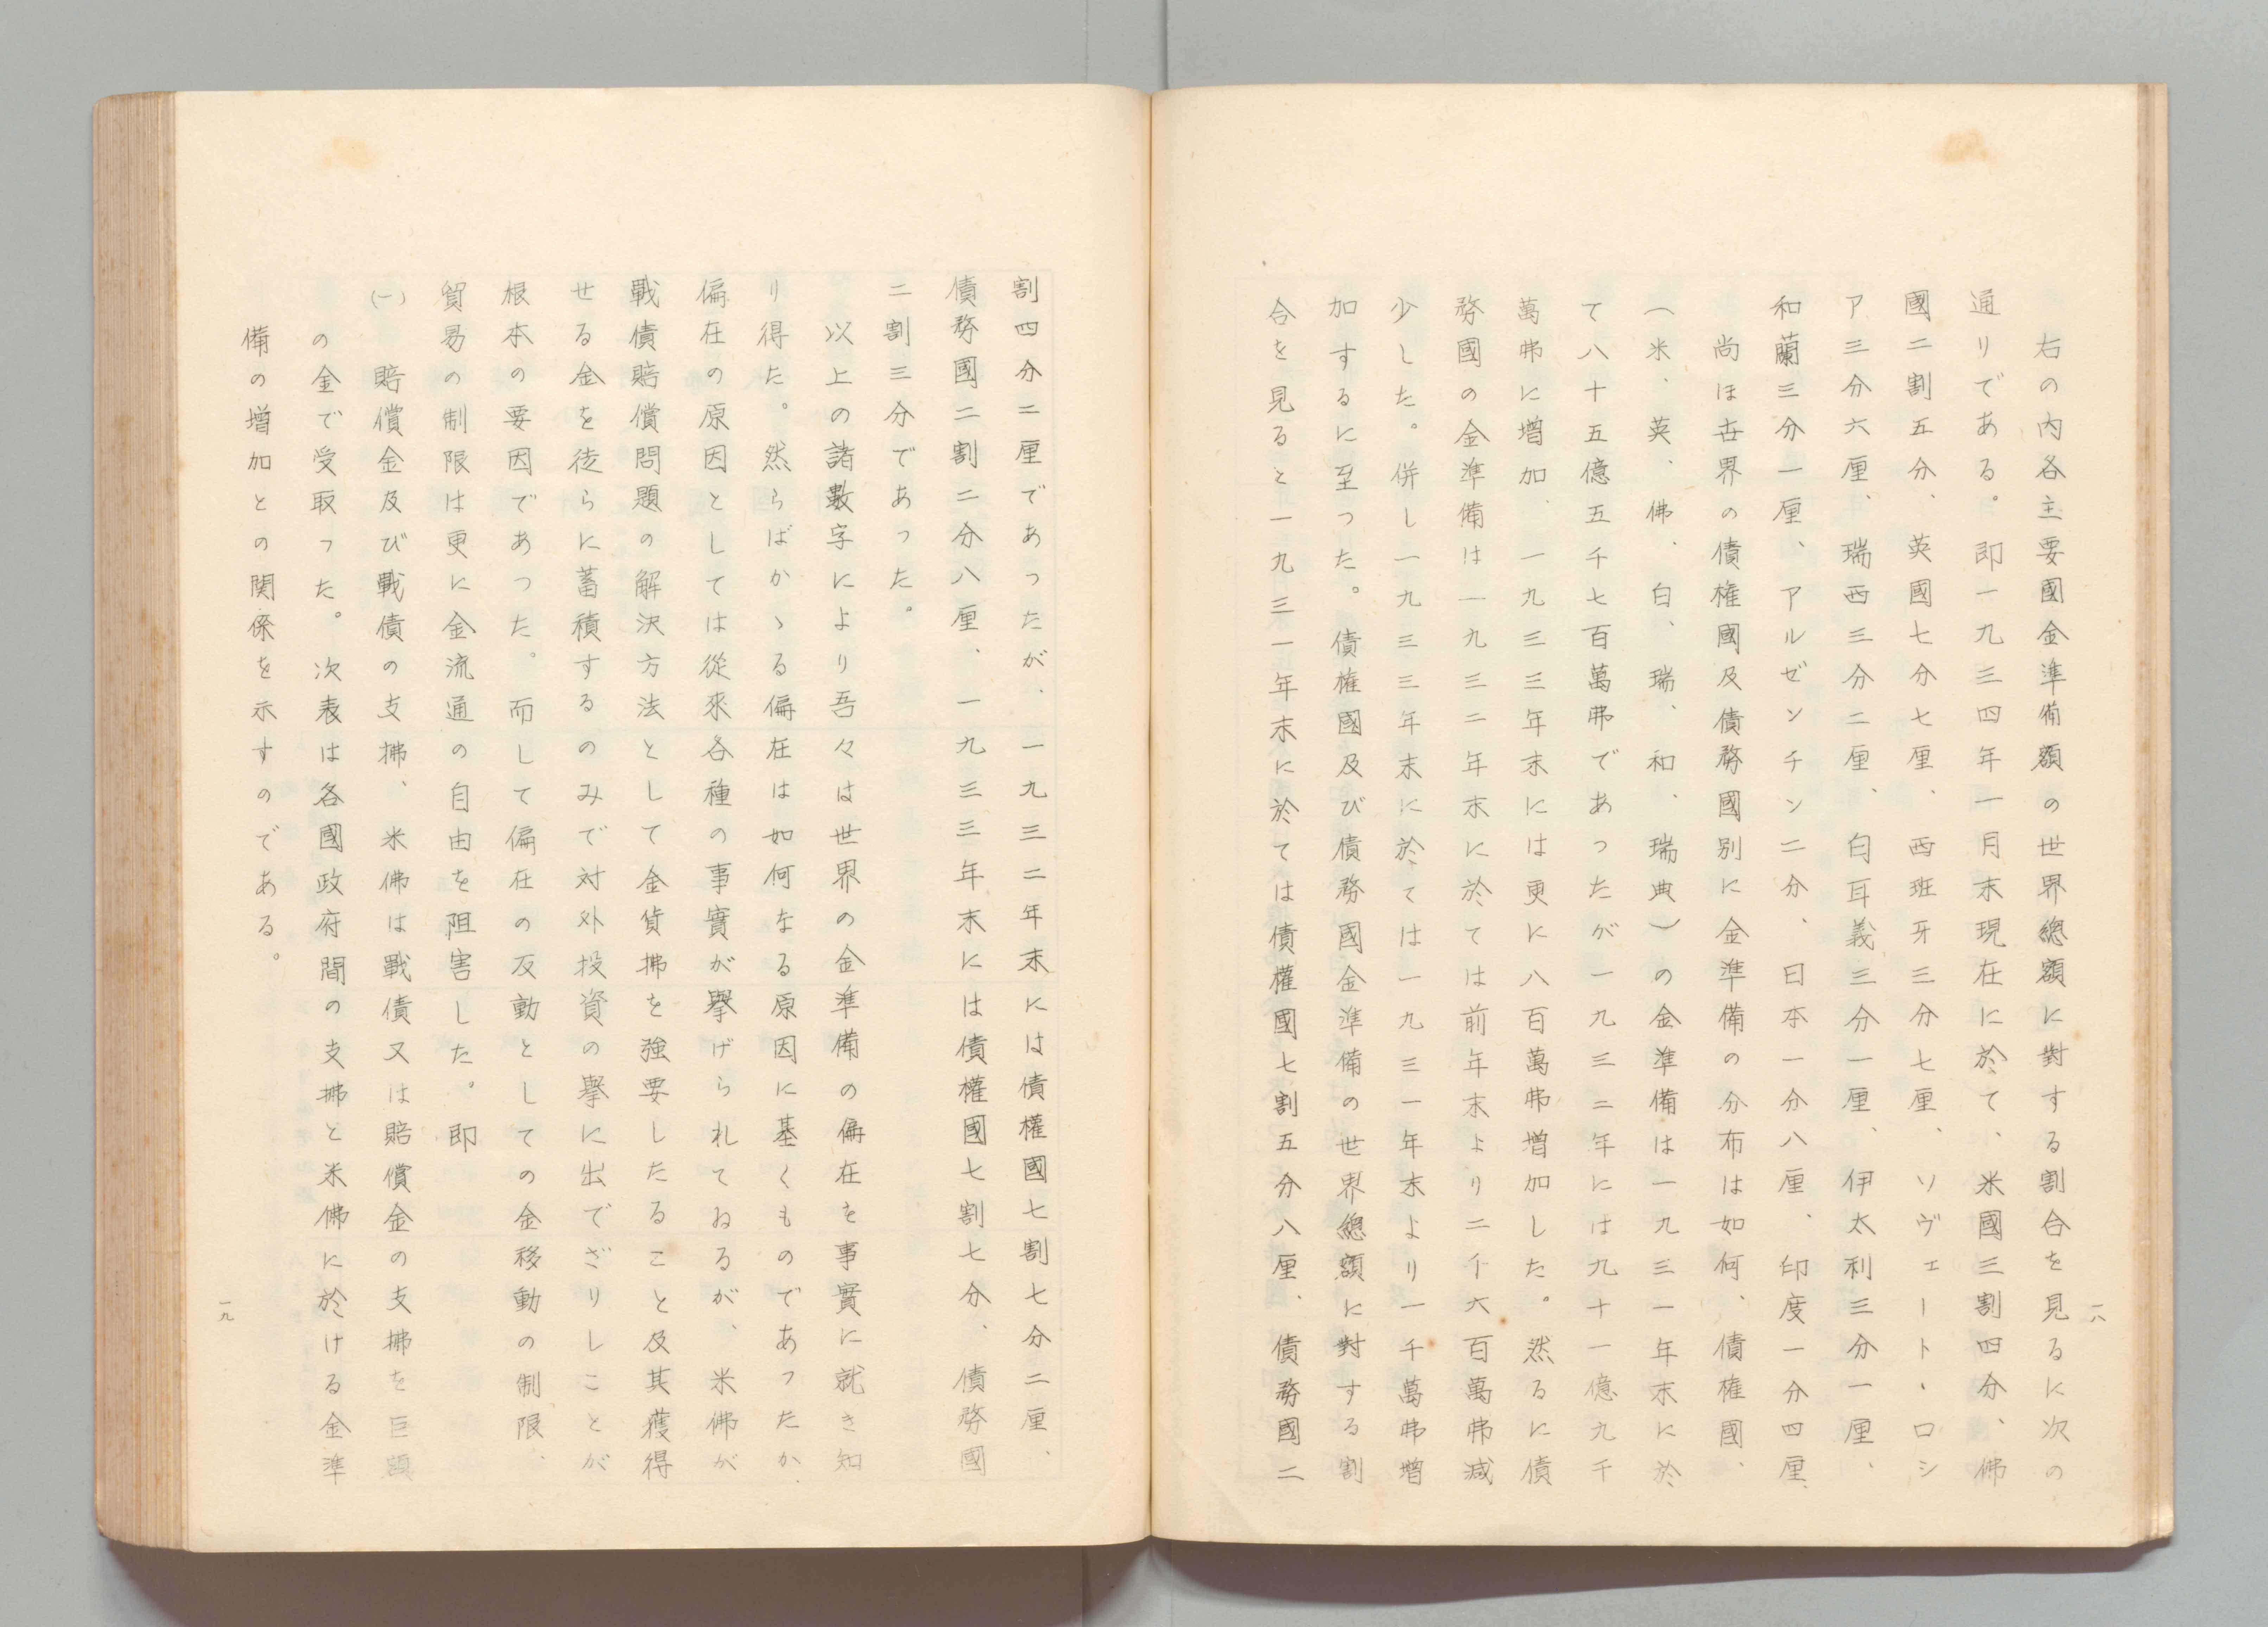 右の內各主要國金準備額の世界總額に對する割合を見るに次の
通りである。卽一九三四年一月末現在に於て、米國三割四分、佛
國二割五分、英國七分七厘、西班牙三分七厘、ソヴェート・ロシ
ア三分六厘、瑞西三分二厘、白耳義三分一厘、伊太利三分一厘、
和蘭三分一厘、アルゼンチン二分、日本一分八厘、印度一分四厘、
尚ほ世界の債権國及債務國別に金準備の分布は如何、債権國、
（米、英、佛、白、瑞、和、瑞典）の金準備は一九三一年末に於
て八十五億五千七百萬弗であつたが一九三二年には九十一億九千
萬弗に増加、一九三三年末には更に八百萬弗増加した。然るに債
務國の金準備は一九三二年末に於ては前年末より二千六百萬弗減
少した。併し一九三三年末に於ては一九三一年末より一千萬弗増
加するに至つた。債権國及び債務國金準備の世界總額に對する割
合を見ると一九三一年末に於ては債權國七割五分八厘、債務國二
一八
割四分二厘であつたが、一九三二年末には債權國七割七分二厘、
債務國二割二分八厘、一九三三年末には債權國七割七分、債務國
二割三分であつた。
以上の諸數字により吾々は世界の金準備の偏在を事實に就き知
り得た。然らばかゝる偏在は如何なる原因に基くものであつたか、
偏在の原因としては從來各種の事實が擧げられておるが、米佛が
戰債賠償問題の解決方法として金貨拂を強要したること及其獲得
せる金を徒らに蓄積するのみで対外投資の擧に出でざりしことが
根本の要因であつた。而して偏在の反動としての金移動の制限、
貿易の制限は更に金流通の自由を阻害した。卽
(一)　賠償金及び戰債の支拂、米佛は戰債又は賠償金の支拂を巨額
の金で受取つた。次表は各國政府間の支拂と米佛に於ける金準
備の増加との関係を示すのである。
一九